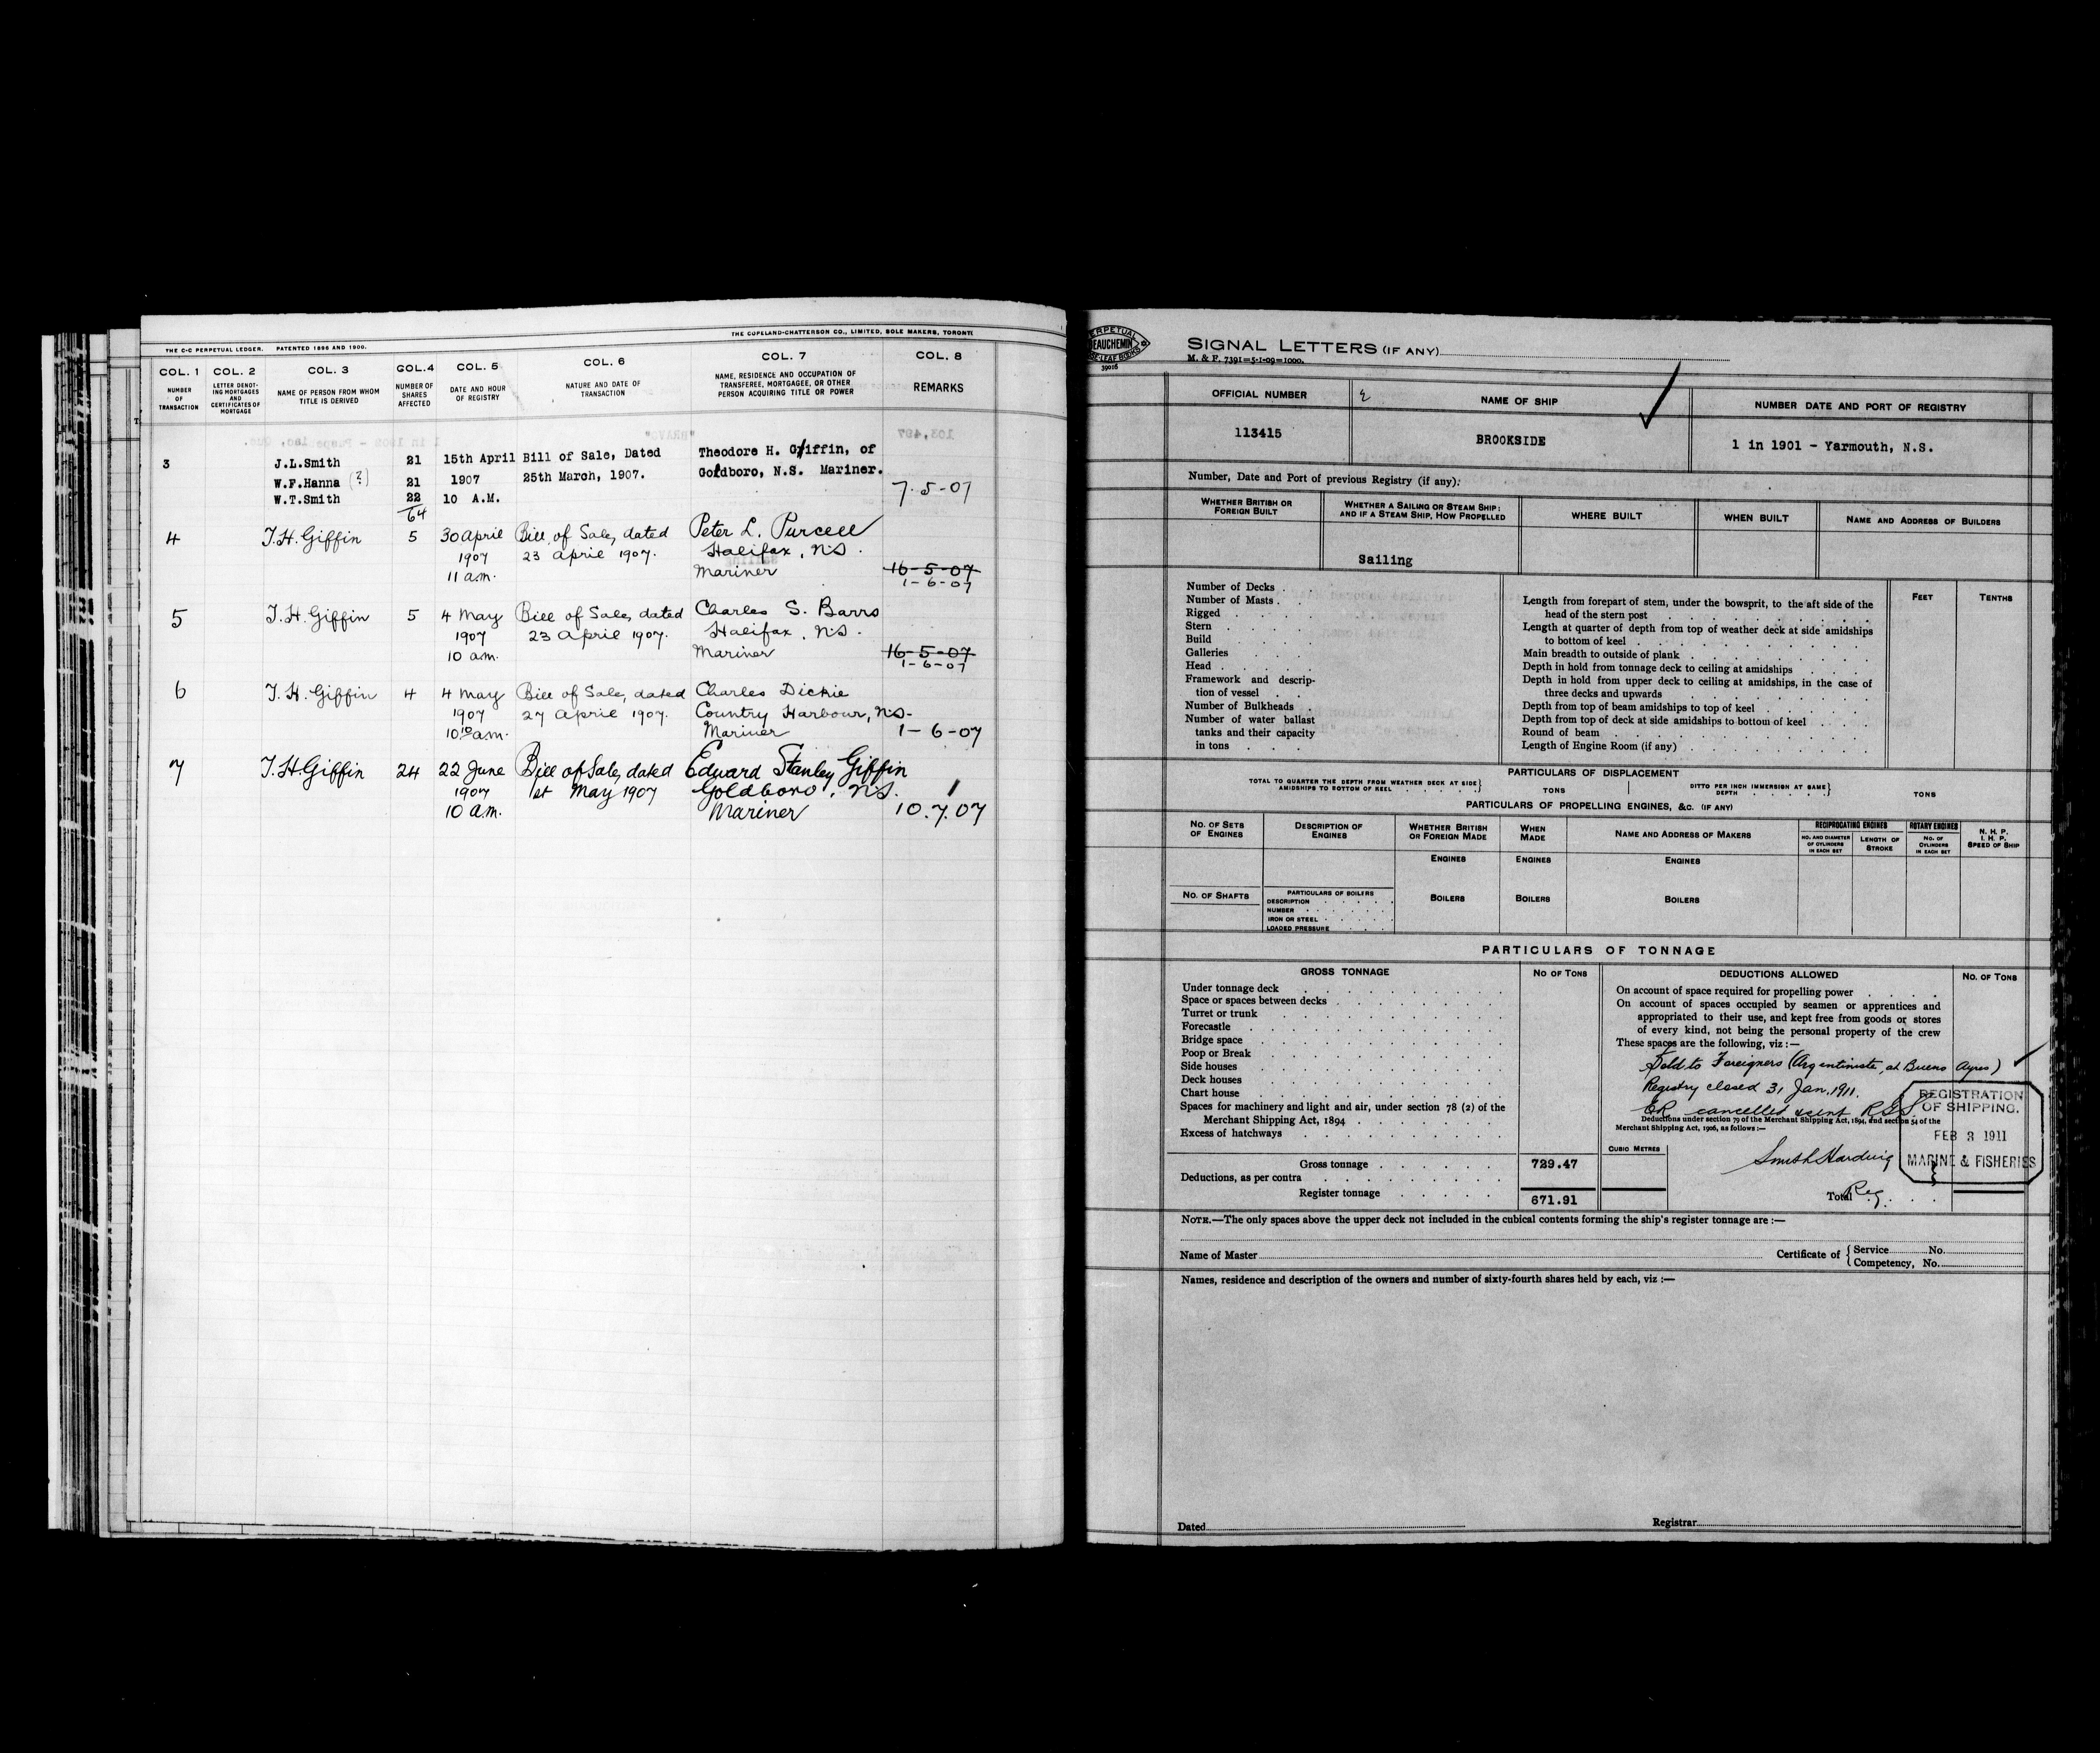 THE C-C PERPETUAL LEDGER. PATENTED 1896 AND 1900.
THE COPELAND-CHATTERSON CO., LIMITED, SOLE MAKERS, TORONTO
COL. 1 COL. 2 COL. 3 COL. 4 COL. 5 COL. 6 COL. 7 COL. 8
NUMBER OF TRANSACTION
LETTER DENOTING MORTGAGES AND CERTIFICATES OF MORTGAGE
NAME OF PERSON FROM WHOM TITLE IS DERIVED
NUMBER OF SHARES AFFECTED
DATE AND HOUR OF REGISTRY
NATURE AND DATE OF TRANSACTION
NAME, RESIDENCE AND OCCUPATION OF TRANSFEREE, MORTGAGEE, OR OTHER PERSON ACQUIRING TITLE OR POWER
REMARKS
3 J.L.Smith 21 15th April Bill of Sale, Dated Theodore H. Griffin, of
W.F.Hanna (?) 21 1907 25th March, 1907. Goldboro, N.S. Mariner.
W.T.Smith 22 10 A.M. 7-5-07
64
4 T.H. Giffin 5 30 April Bill of Sale, dated Peter L. Purcell
1907 23 April 1907. Halifax, N.S.
11 a.m. Mariner 16-5-07
1-6-07
5 T.H. Giffin 5 4 May Bill of Sale, dated Charles S. Barrs
1907 23 April 1907. Halifax, N.S.
10 a.m. Mariner 16-5-07
1-6-07
6 T.H. Giffin 4 4 May Bill of Sale, dated Charles Dickie
1907 27 April 1907. Country Harbour, N.S.
10 10 a.m. Mariner 1-6-07
7 T.H. Giffin 24 22 June Bill of Sale, dated Edward Stanley Giffin
1907 1st May 1907 Goldboro, N.S.
10 a.m. Mariner 10.7.07
PERPETUAL
BEAUCHEMIN
39016
SIGNAL LETTERS (IF ANY)
M. & F. 7391=5-1-09=1000.
OFFICIAL NUMBER NAME OF SHIP NUMBER DATE AND PORT OF REGISTRY
113415 BROOKSIDE 1 in 1901 - Yarmouth, N.S.
Number, Date and Port of previous Registry (if any):
WHETHER BRITISH OR FOREIGN BUILT
WHETHER A SAILING OR STEAM SHIP: AND IF A STEAM SHIP, HOW PROPELLED
WHERE BUILT
WHEN BUILT
NAME AND ADDRESS OF BUILDERS
Sailing
Number of Decks
Number of Masts
Rigged
Stern
Build
Galleries
Head
Framework and description of vessel
Number of Bulkheads
Number of water ballast
tanks and their capacity
in tons
FEET TENTHS
Length from forepart of stem, under the bowsprit, to the aft side of the
head of the stern post
Length at quarter of depth from top of weather deck at side amidships
to bottom of keel
Main breadth to outside of plank
Depth in hold from tonnage deck to ceiling at amidships
Depth in hold from upper deck to ceiling at amidships, in the case of
three decks and upwards
Depth from top of beam amidships to top of keel
Depth from top of deck at side amidships to bottom of keel
Round of beam
Length of Engine Room (if any)
PARTICULARS OF DISPLACEMENT
TOTAL TO QUARTER THE DEPTH FROM WEATHER DECK AT SIDE AMIDSHIPS TO BOTTOM OF KEEL TONS
DITTO PER INCH IMMERSION AT SAME DEPTH TONS
PARTICULARS OF PROPELLING ENGINES, &C. (IF ANY)
NO. OF SETS OF ENGINES
DESCRIPTION OF ENGINES
WHETHER BRITISH OR FOREIGN MADE
WHEN MADE
NAME AND ADDRESS OF MAKERS
RECIPROCATING ENGINES
NO. AND DIAMETER OF CYLINDERS IN EACH SET
LENGTH OF STROKE
ROTARY ENGINES
NO. OF CYLINDERS IN EACH SET
N. H. P. I. H. P. SPEED OF SHIP
ENGINES ENGINES ENGINES
NO. OF SHAFTS
PARTICULARS OF BOILERS
DESCRIPTION
NUMBER
IRON OR STEEL
LOADED PRESSURE
BOILERS BOILERS BOILERS
PARTICULARS OF TONNAGE
GROSS TONNAGE NO OF TONS DEDUCTIONS ALLOWED NO. OF TONS
Under tonnage deck
Space or spaces between decks
Turret or trunk
Forecastle
Bridge space
Poop or Break
Side houses
Deck houses
Chart house
Spaces for machinery and light and air, under section 78 (2) of the
Merchant Shipping Act, 1894
Excess of hatchways
Gross tonnage 729.47
Deductions, as per contra
Register tonnage 671.91
On account of space required for propelling power
On account of spaces occupied by seamen or apprentices and
appropriated to their use, and kept free from goods or stores
of every kind, not being the personal property of the crew
These spaces are the following, viz:—
Sold to Foreigners (Argentinists, at Buenos Ayres)
Registry closed 31 Jan. 1911.
CR cancelled & sent RGS.
Deductions under section 79 of the Merchant Shipping Act, 1894, and section 54 of the
Merchant Shipping Act, 1906, as follows:—
CUBIC METRES
REGISTRATION
OF SHIPPING.
FEB 3 1911
MARINE & FISHERIES
Smith Harding
Reg.
Total
NOTE.—The only spaces above the upper deck not included in the cubical contents forming the ship's register tonnage are:—
Name of Master
Certificate of Service No.
Competency, No.
Names, residence and description of the owners and number of sixty-fourth shares held by each, viz:—
Dated
Registrar